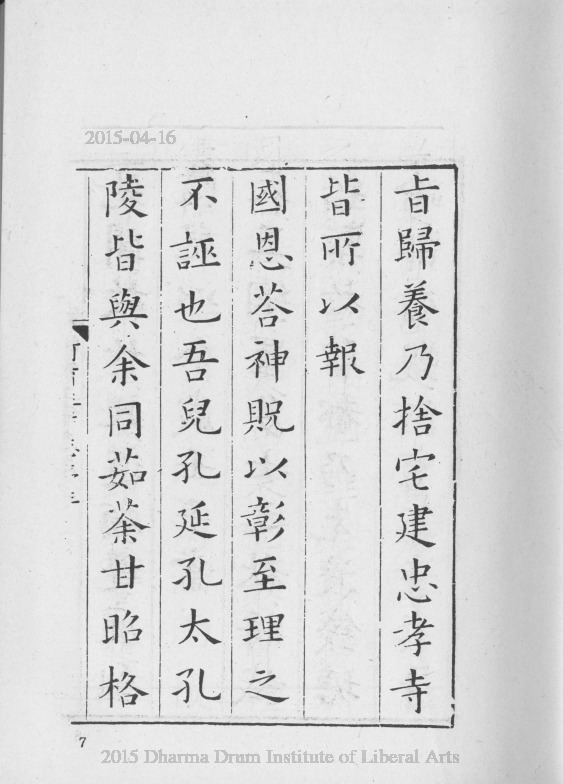 2015-04-16
旨歸養乃捨宅建忠孝寺
皆所以報
國恩荅神貺以彰至理之
不誣也吾兒孔延孔太孔
陵皆與余同茹荼甘昭格
7
2015 Dharma Drum Institute of Liberal Arts